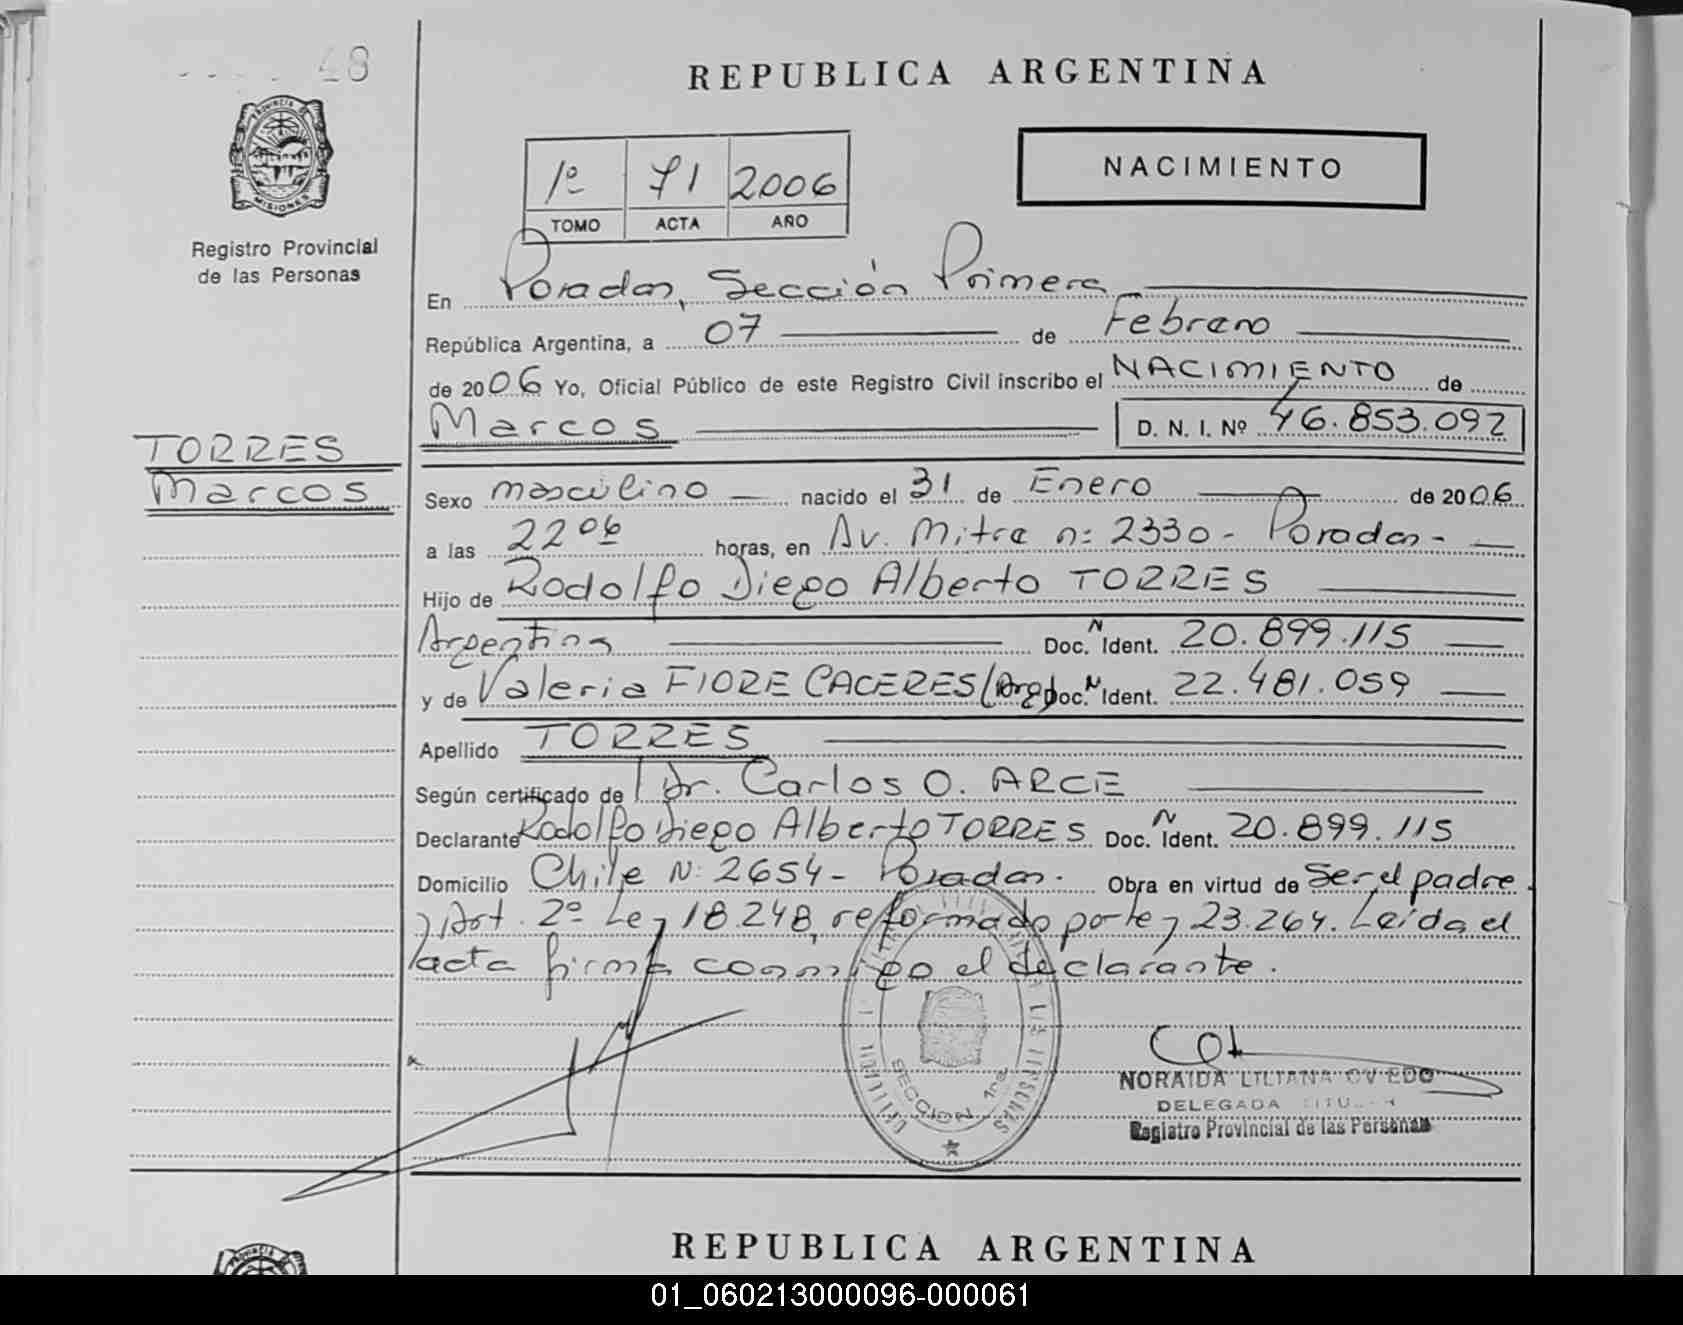 48
REPUBLICA ARGENTINA
PROVINCIA DE
MISIONES
Registro Provincial
de las Personas
1º 71 2006
TOMO ACTA AÑO
NACIMIENTO
En Posadas, Sección Primera
República Argentina, a 07 de Febrero
de 2006 Yo, Oficial Público de este Registro Civil inscribo el NACIMIENTO de
Marcos D. N. I. Nº 46.853.092
TORRES
Marcos
Sexo masculino nacido el 31 de Enero de 2006
a las 22 06 horas, en Av. Mitre nº 2330 - Posadas -
Hijo de Rodolfo Diego Alberto TORRES
Argentina Doc. N Ident. 20.899.115
y de Valeria FIORE CACERES (Arg) Doc. N Ident. 22.481.059
Apellido TORRES
Según certificado de Dr. Carlos O. ARCE
Declarante Rodolfo Diego Alberto TORRES Doc. N Ident. 20.899.115
Domicilio Chile Nº 2654 - Posadas. Obra en virtud de Ser el padre
y Art. 2º Ley 18.248, reformado por ley 23.264. Leída el
acta firma conmigo el declarante.
SECCION 1ra
NORAIDA LILIANA OVIEDO
DELEGADA TITULAR
Registro Provincial de las Personas
REPUBLICA ARGENTINA
01_060213000096-000061